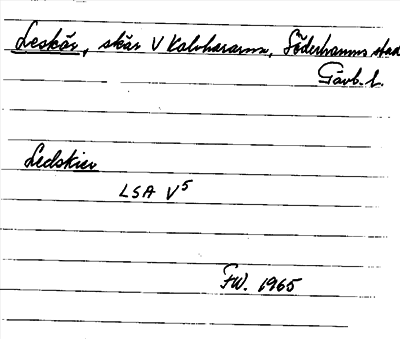 Leskär, skär V Kalvhararna, Söderhamns stad
Gävb. l.
Ledskier
LSA V⁵
FW. 1965